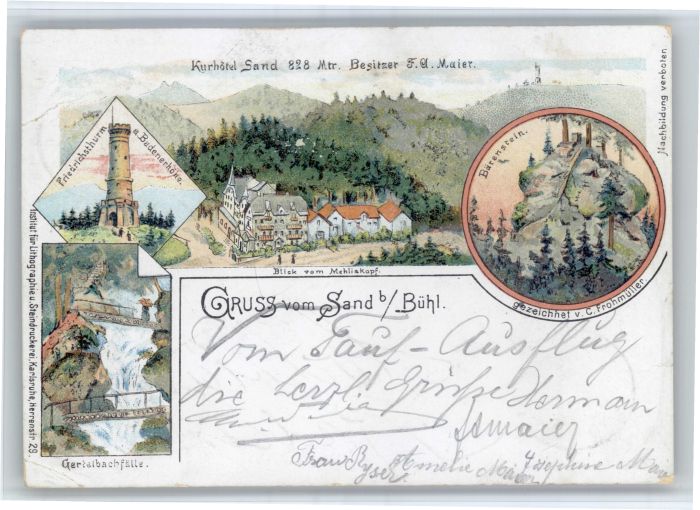 Kurhôtel Sand 828 Mtr. Besitzer F. A. Maier.
Nachbildung verboten
Friedrichsthurm
a. Badenerhöhe.
Bärenstein.
Blick vom Mehliskopf.
gezeichnet v. C. Frohmüller.
Institut für Lithographie u. Steindruckerei, Karlsruhe, Herrenstr. 29.
GRUSS vom Sand b/Bühl.
Vom Tauf-Ausflug
die herzl. Grüße Hermann
Amelie Maier
Josephine
Frau
Gertelbachfälle.